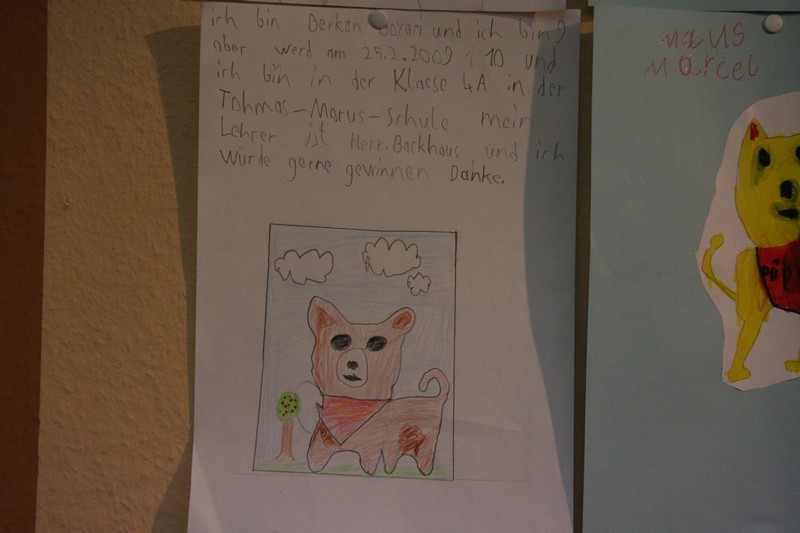 ich bin Derkan und ich bin 9
aber werd am 25.2.2009 10 und
ich bin in der Klasse 4A in der
Tohmas-Morus-Schule mein
Lehrer ist Herr.Backhaus und ich
würde gerne gewinnen Danke.
Maus
Marcel